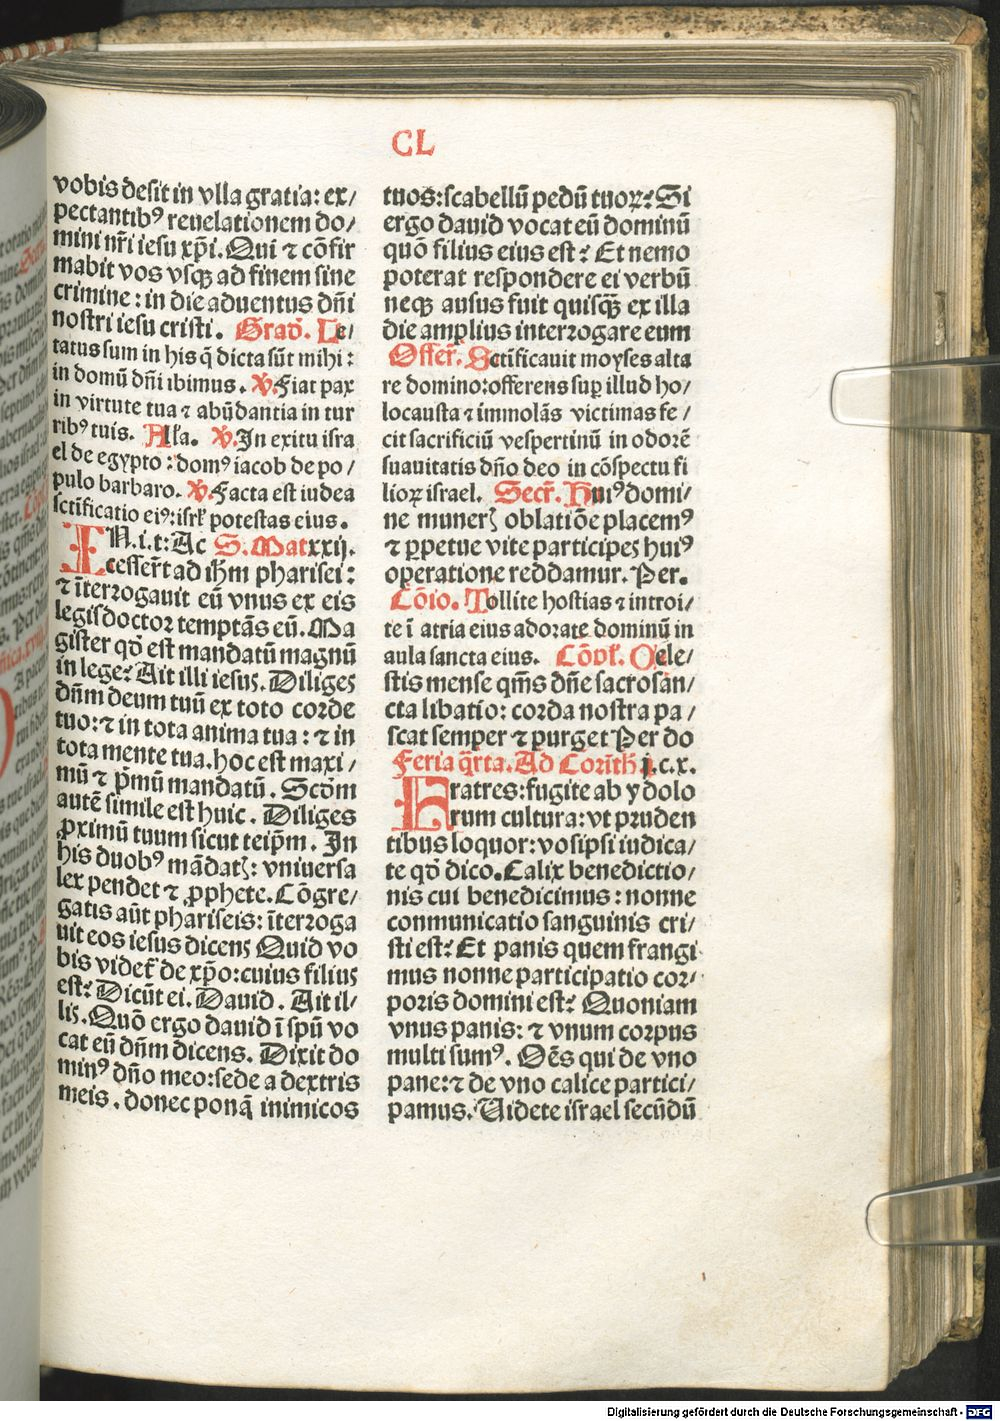 CL
vobis desit in vlla gratia: ex/
pectantibꝰ reuelationem do/
mini nr̃i iesu xp̄i. Qui ⁊ cōfir
mabit vos vsqꝫ ad finem sine
crimine: in die aduentus dn̄i
nostri iesu cristi. Grad̄. Le/
tatus sum in his q̄ dicta sūt mihi:
in domū dn̄i ibimus. ℣. Fiat pax
in virtute tua ⁊ abūdantia in tur
ribꝰ tuis. Alła. ℣. In exitu isra
el de egypto: domꝰ iacob de po/
pulo barbaro. ℣. Facta est iudea
sctificatio eiꝰ: isrł potestas eius.
IN.i.t: Ac S. Mat xxij.
cesser̄t ad ih̄m pharisei:
⁊ īterrogauit eū vnus ex eis
legisdoctor temptās eū. Ma
gister qd̄ est mandatū magnū
in lege? Ait illi iesus. Diliges
dn̄m deum tuū ex toto corde
tuo: ⁊ in tota anima tua: ⁊ in
tota mente tua. hoc est maxi/
mū ⁊ pͥmū mandatū. Scd̄m
autē simile est huic. Diliges
ꝓximū tuum sicut teip̄m. In
his duobꝰ mādatꝭ: vniuersa
lex pendet ⁊ ꝓphete. Cōgre/
gatis aūt phariseis: īterroga
uit eos iesus dicens Quid vo
bis videt̄ de xp̄o: cuius filius
est? Dicūt ei. Dauid. Ait il/
lis. Quō ergo dauid ī spū vo
cat eū dn̄m dicens. Dixit do
minꝰ dn̄o meo: sede a dextris
meis. donec ponā inimicos
tuos: scabellū pedū tuoꝝ? Si
ergo dauid vocat eū dominū
quō filius eius est? Et nemo
poterat respondere ei verbū
neqꝫ ausus fuit quisqꝫ̄ ex illa
die amplius interrogare eum
Offer̄. Sctificauit moyses alta
re domino: offerens suꝑ illud ho/
locausta ⁊ immolās victimas fe/
cit sacrificiū vespertinū in odorē
suauitatis dn̄o deo in cōspectu fi
lioꝝ israel. Secr̄. Huiꝰ domi/
ne munerꝭ oblatiōe placemꝰ
⁊ ꝑpetue vite participes huiꝰ
operatione reddamur. Per.
Cōio. Tollite hostias ⁊ introi/
te ī atria eius adorate dominū in
aula sancta eius. Cōpł. Cele/
stis mense qm̄s dn̄e sacrosan/
cta libatio: corda nostra pa/
scat semper ⁊ purget Per do
Feria q̄rta. Ad Corīth̄ j.c.x.
Fratres: fugite ab ydolo
rum cultura: vt pruden
tibus loquor: vos ipsi iudica/
te qd̄ dico. Calix benedictio/
nis cui benedicimus: nonne
conmunicatio sanguinis cri/
sti est? Et panis quem frangi
mus nonne participatio cor/
poris domini est? Quoniam
vnus panis: ⁊ vnum corpus
multi sumꝰ. Oēs qui de vno
pane: ⁊ de vno calice partici/
pamus. Videte israel secūdū
Digitalisierung gefördert durch die Deutsche Forschungsgemeinschaft - DFG